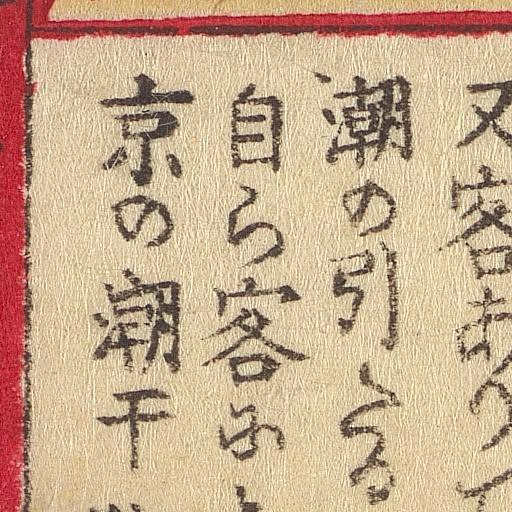 又客あり
潮の引くる
自ら客に
京の潮干